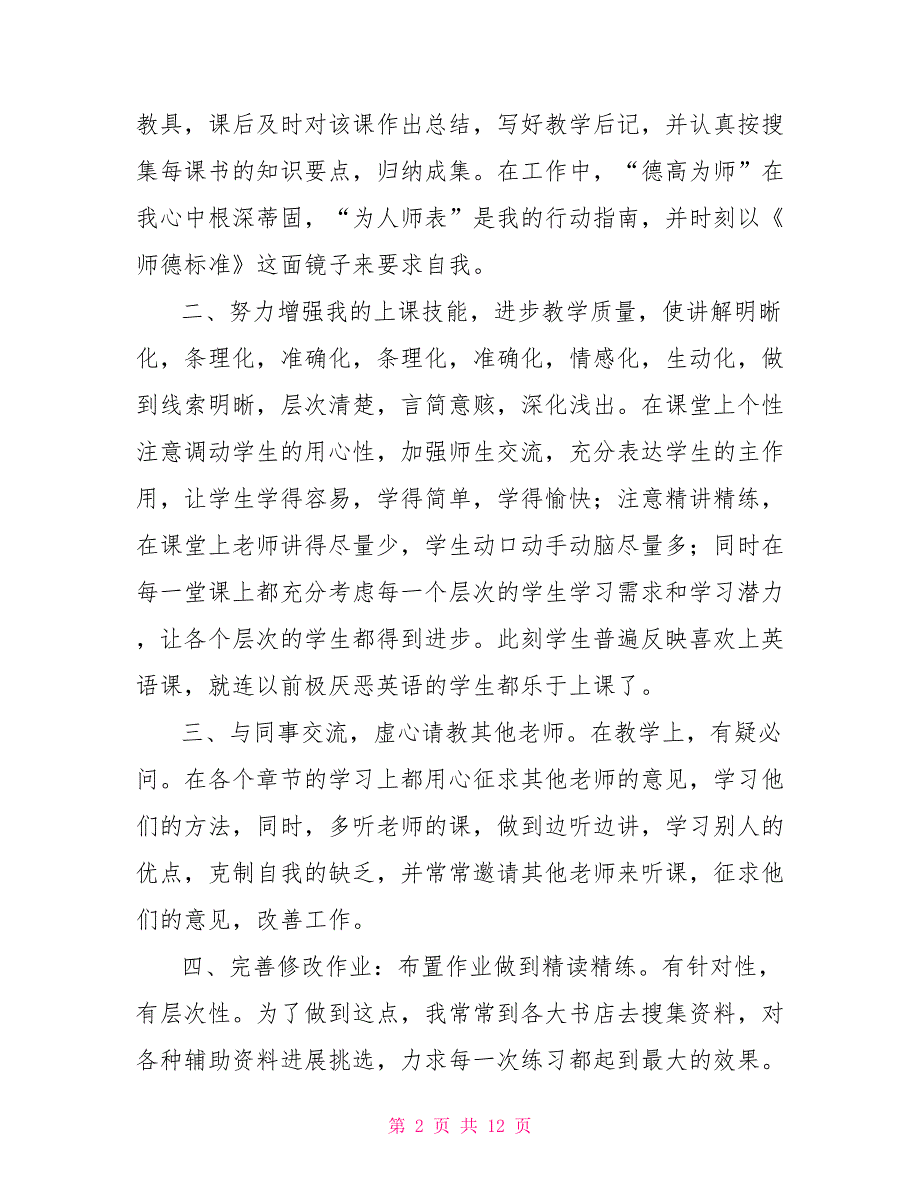 教具，课后及时对该课作出总结，写好教学后记，并认真按搜
集每课书的知识要点，归纳成集。在工作中，“德高为师”在
我心中根深蒂固，“为人师表”是我的行动指南，并时刻以《
师德标准》这面镜子来要求自我。
二、努力增强我的上课技能，进步教学质量，使讲解明晰
化，条理化，准确化，条理化，准确化，情感化，生动化，做
到线索明晰，层次清楚，言简意赅，深化浅出。在课堂上个性
注意调动学生的用心性，加强师生交流，充分表达学生的主作
用，让学生学得容易，学得简单，学得愉快；注意精讲精练，
在课堂上老师讲得尽量少，学生动口动手动脑尽量多；同时在
每一堂课上都充分考虑每一个层次的学生学习需求和学习潜力
，让各个层次的学生都得到进步。此刻学生普遍反映喜欢上英
语课，就连以前极厌恶英语的学生都乐于上课了。
三、与同事交流，虚心请教其他老师。在教学上，有疑必
问。在各个章节的学习上都用心征求其他老师的意见，学习他
们的方法，同时，多听老师的课，做到边听边讲，学习别人的
优点，克制自我的缺乏，并常常邀请其他老师来听课，征求他
们的意见，改善工作。
四、完善修改作业：布置作业做到精读精练。有针对性，
有层次性。为了做到这点，我常常到各大书店去搜集资料，对
各种辅助资料进展挑选，力求每一次练习都起到最大的效果。
第 2 页 共 12 页